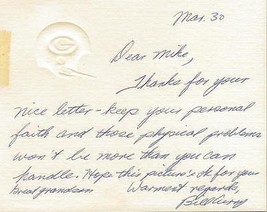 Mar. 30
Dear Mike,
Thanks for your
nice letter - keep your personal
faith and those physical problems
won't be more than you can
handle. Hope this picture's ok for your
great grandson
Warmest regards,
Bill Curry